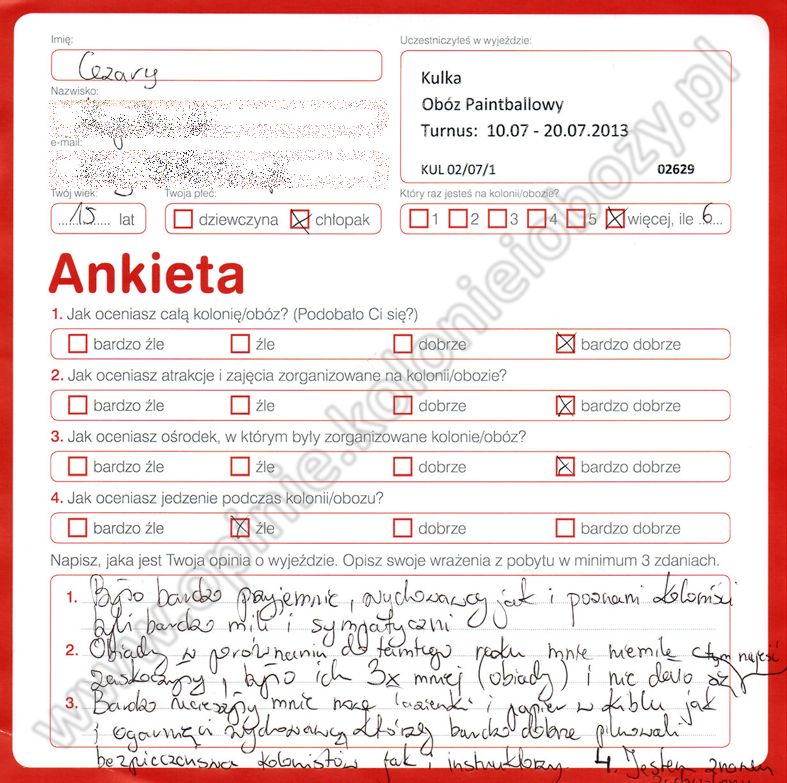 Imię:
Cezary
Nazwisko:
e-mail:
Twój wiek:
15 lat
Twoja płeć:
dziewczyna chłopak
Uczestniczyłeś w wyjeździe:
Kulka
Obóz Paintballowy
Turnus: 10.07 - 20.07.2013
KUL 02/07/1 02629
Który raz jesteś na kolonii/obozie?
1 2 3 4 5 więcej, ile 6
Ankieta
1. Jak oceniasz całą kolonię/obóz? (Podobało Ci się?)
bardzo źle źle dobrze bardzo dobrze
2. Jak oceniasz atrakcje i zajęcia zorganizowane na kolonii/obozie?
bardzo źle źle dobrze bardzo dobrze
3. Jak oceniasz ośrodek, w którym były zorganizowane kolonie/obóz?
bardzo źle źle dobrze bardzo dobrze
4. Jak oceniasz jedzenie podczas kolonii/obozu?
bardzo źle źle dobrze bardzo dobrze
Napisz, jaka jest Twoja opinia o wyjeździe. Opisz swoje wrażenia z pobytu w minimum 3 zdaniach.
1. Było bardzo przyjemnie, wychowawcy jak i poznani koloniści
byli bardzo mili i sympatyczni
2. Obiady w porównaniu do tamtego roku mnie niemile
zaskoczyły, było ich 3x mniej (obiady) i nie dało się tym najeść
3. Bardzo ucieszyły mnie nowe łazienki i papier w kiblu jak
i ogarnięci wychowawcy którzy bardzo dobrze pilnowali
bezpieczeństwa kolonistów jak i instruktorzy. 4. Jestem znowu
www.opinie.kolonieiobozy.pl